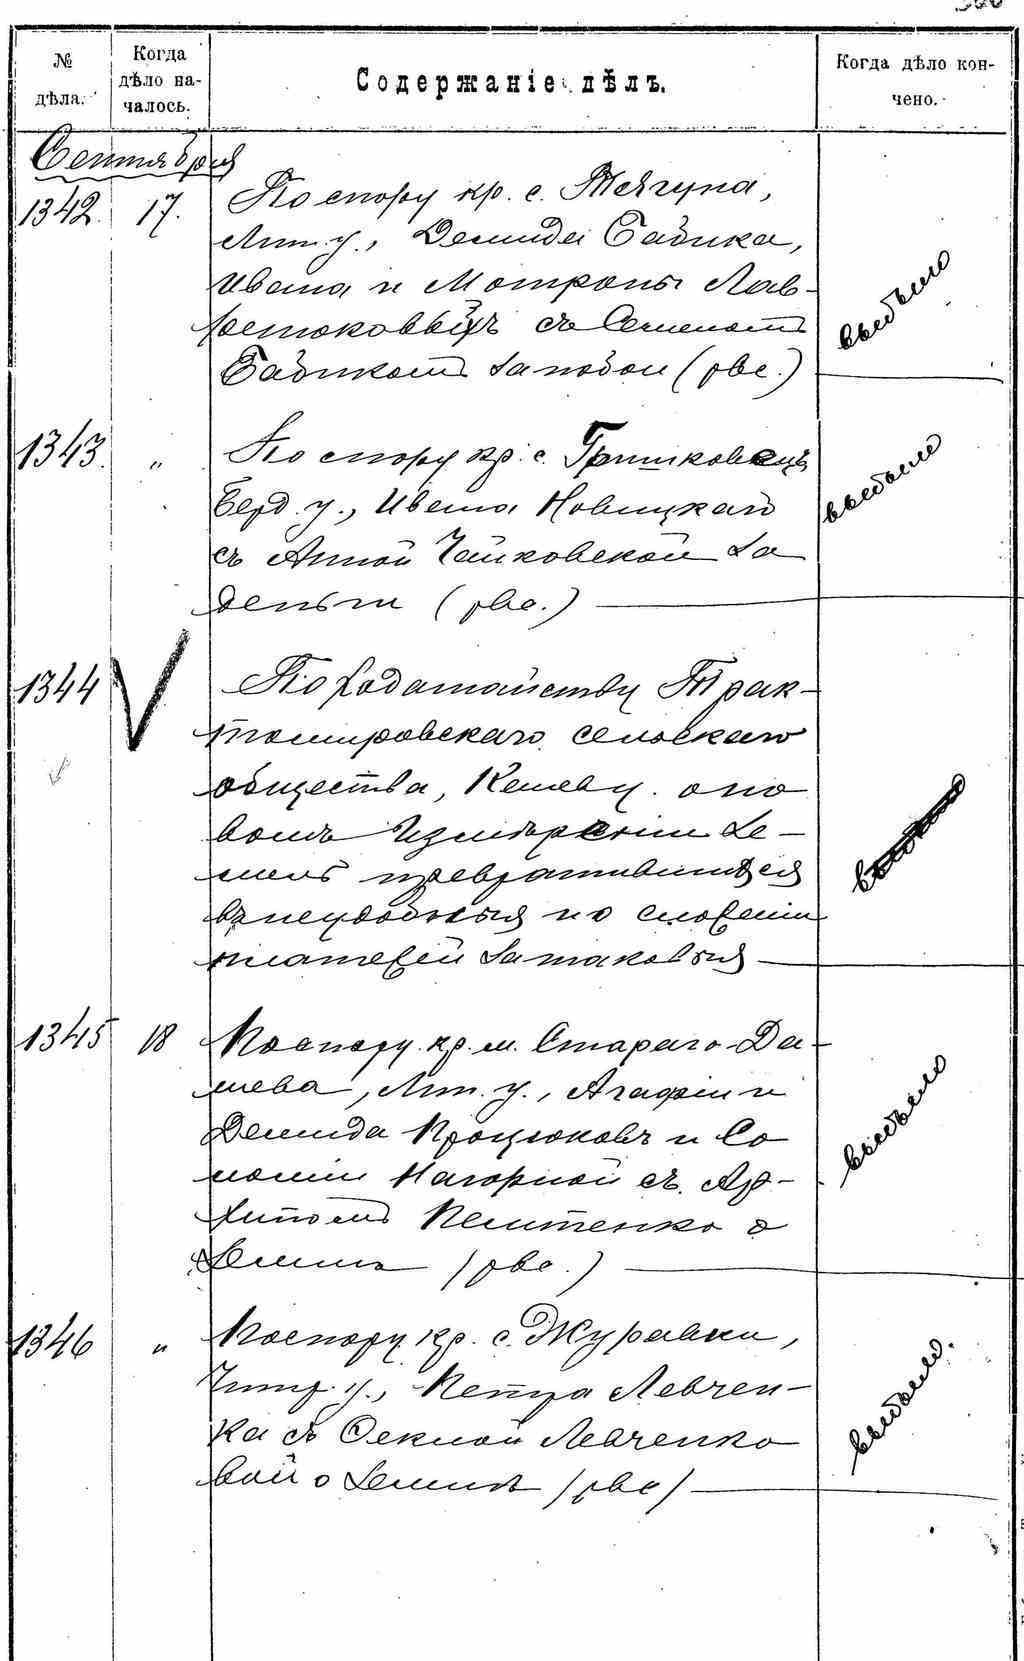 № дѣла.
Когда дѣло на-
чалось.
Содержаніе дѣлъ.
Когда дѣло кон-
чено.
Сентября
1342. 17. По спору кр. с. Тягуна,
Лип. у., Демида Бабика,
Ивана и Мотроны Лав-
ренюковыхъ съ Семеномъ
Бабикомъ за побои (рвс.)
выбыло
1343. " По спору кр. с. Гришковецъ
Берд. у., Ивана Новицкаго
съ Анной Чайковской за
деньги (рвс.)
выбыло
1344 По ходатайству Трак-
томировскаго сельскаго
общества, Каневск. у. о но
вомъ измѣреніи зе-
мель превратившихся
въ неудобныя и о сложеніи
платежей за таковыя
выбыло
1345 18 По спору кр. м. Стараго-Да-
шева, Лип. у., Агафіи и
Демида Процюковъ и Со
ломіи Нагорной съ Ар-
хипомъ Пештенко о
землѣ (рвс.)
выбыло
1346 " По спору кр. с. Журавки,
Чигир. у., Петра Левчен-
ка съ Феклой Левченко
вой о землѣ (рвс)
выбыло.